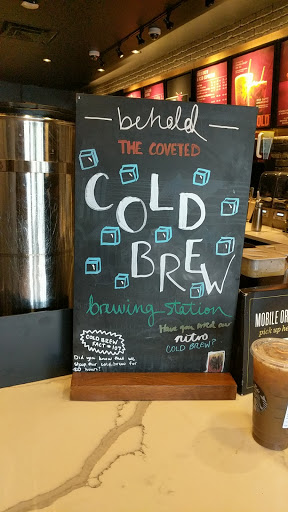 behold
THE COVETED
COLD
BREW
brewing station
Have you tried our
nitro
COLD BREW?
COLD BREW
FACT # 107
Did you know that we
steep our cold brew for
20 hours?
MOBILE OR
pick up he